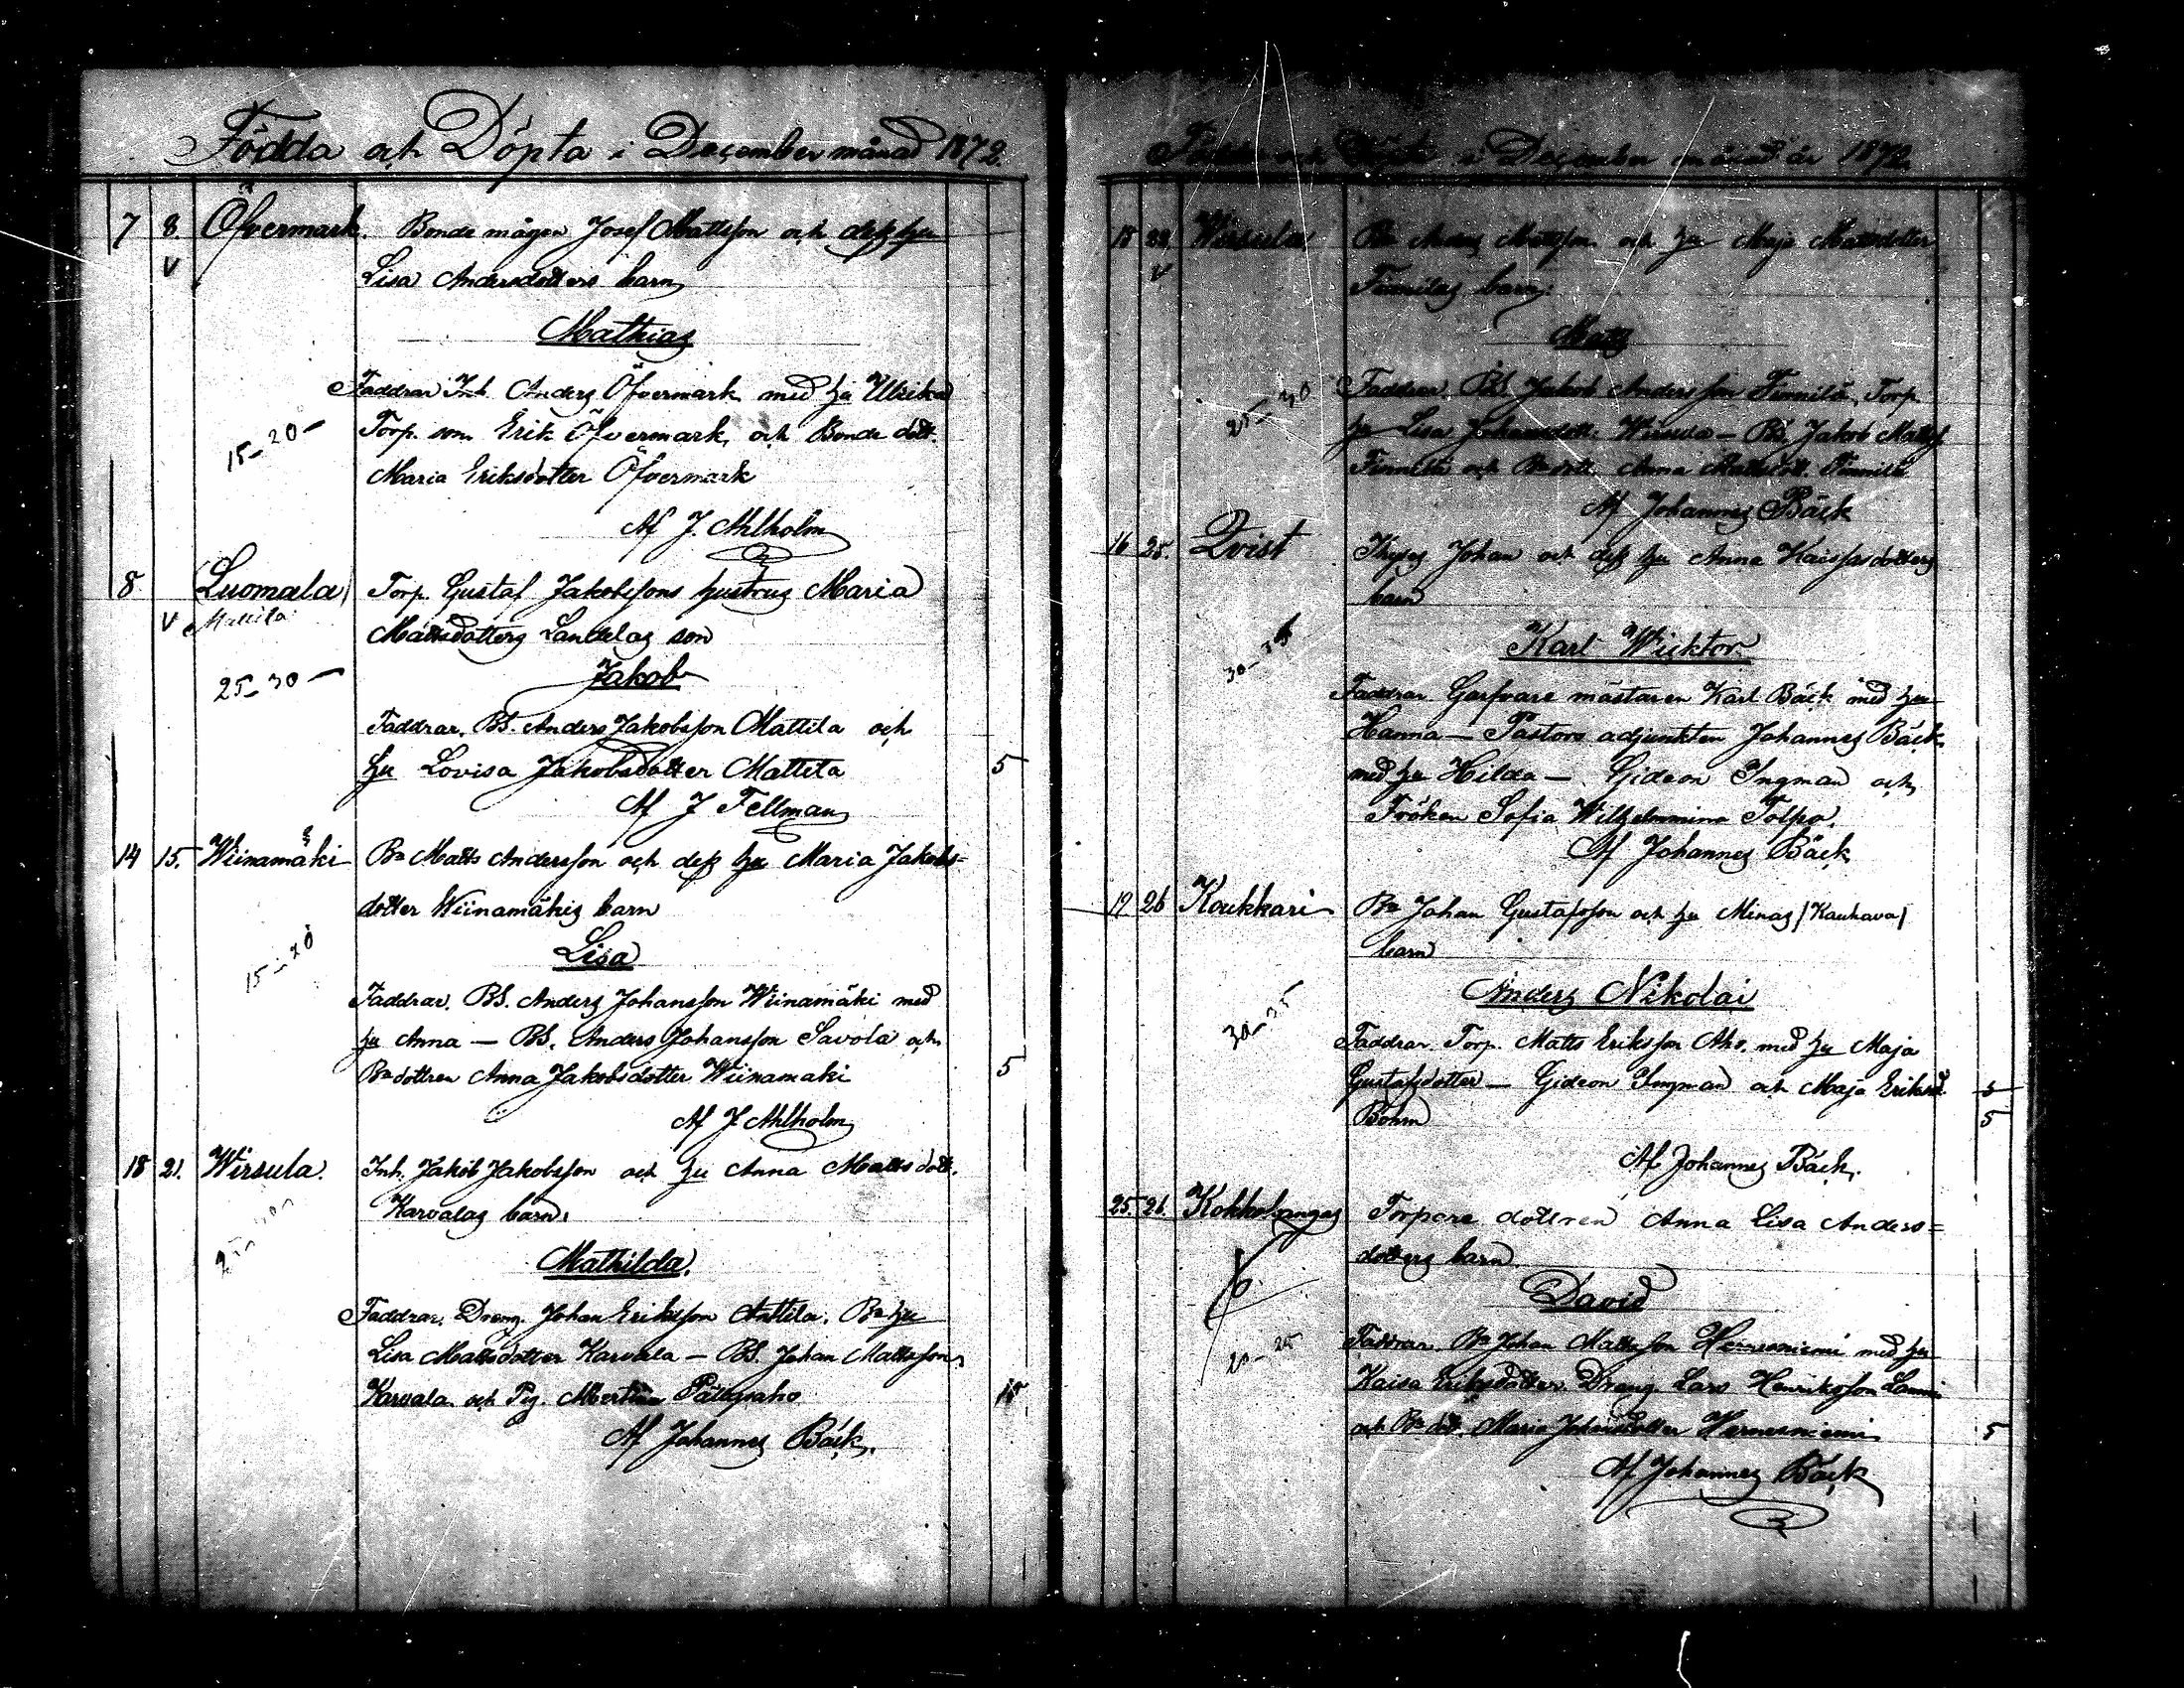 Födda och Döpta i December månad 1872.
7 8. Öfvermark. Bonde mågen Josef Mattsson och dess hu
V Lisa Andersdotters barn
Mathias
Faddrar Inh. Anders Öfvermark med hu Ulrika
15-20- Torp. son Erik Öfvermark, och Bonde dott.
Maria Eriksdotter Öfvermark
Af J. Ahlholm
8 Luomala Torp. Gustaf Jakobssons hustrus Maria
V Mattila Mattsdotters son
25-30- Jakob
Faddrar, BS. Anders Jakobsson Mattila och
hu Lovisa Jakobsdotter Mattila 5
Af J Fellman
14 15. Wiinamäki Bn Matts Andersson och dess hu Maria Jakobs=
dotter Wiinamäkis barn
15-20 Lisa
Faddrar, BS. Anders Johansson Wiinamäki med
hu Anna — BS. Anders Johansson Savola och
Bn dottren Anna Jakobsdotter Wiinamaki 5
Af J. Ahlholm
18 21. Wirsula. Inh. Jakob Jakobsson och hu Anna Matts dott.
Karvalas barn.
Mathilda.
Faddrar, Dreng. Johan Eriksson Anttila. Bn hu
Lisa Mattsdotter Karvala — BS. Johan Mattsson
Karvala och Pig.
Af Johannes Bäck.
Födda och Döpta i December månad år 1872
22. Wirsula Bn Matts Mattsson och hu Maja Mattsdotter
V Finnilas barn.
Matts
25-30 Faddrar. BS. Jakob Andersson Finnilä, Torp.
hu Lisa Johansdott. Wirsula — BS. Jakob Matts
Finnilä och Bn dott. Anna Mattsdott. Finnilä
Af Johannes Bäck
16 25. Qvist Johan och dess hu Anna Kaisasdotters
barn
30-35 Karl Wicktor
Faddrar Garfvare mästaren Karl Bäck med hu
Hanna — Pastors adjunkten Johannes Bäck
med hu Hilda — Gideon Ingman och
Fröken Sofia Wilhelmmina Tolpo.
Af Johannes Bäck
19 26 Koukkari Bn Johan Gustafsson och hu Minas /Kauhava/
barn
Anders Nikolai
30-35 Faddrar. Torp. Matts Eriksson Aho. med hu Maja
Gustafsdotter — Gideon Ingman och Maja Eriksd.
Böhm 5
Af Johannes Bäck.
25 26. Torpare dottren Anna Lisa Anders=
dotters barn
David
20-25 Faddrar. Bn Johan Mattsson med hu
Kaisa Eriksdotter. Dreng. Lars Henriksson
och Bn dot. Maria Johansdotter 5
Af Johannes Bäck